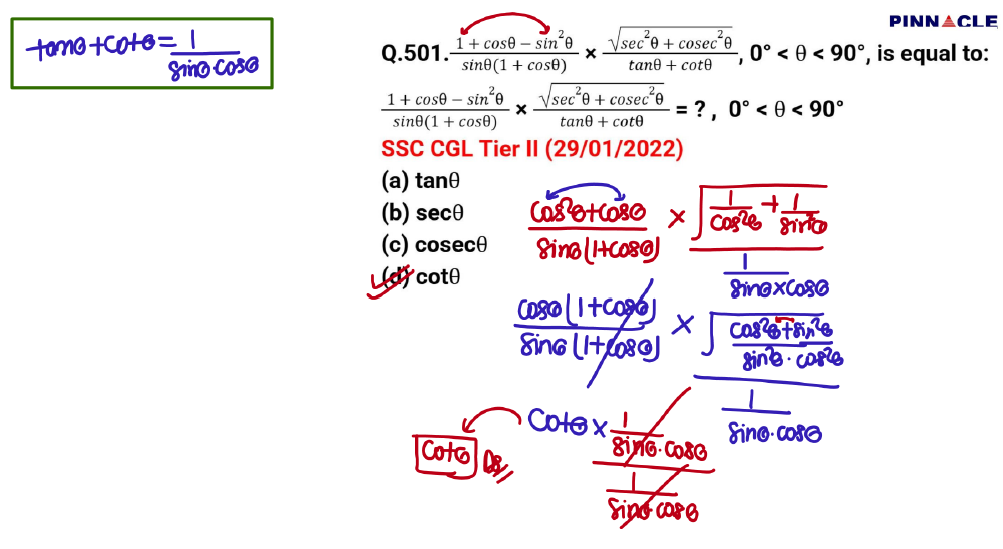 PINNACLE
tanθ + cotθ = 1/(sinθ·cosθ)
Q.501. (1 + cosθ − sin²θ)/(sinθ(1 + cosθ)) × √(sec²θ + cosec²θ)/(tanθ + cotθ), 0° < θ < 90°, is equal to:
(1 + cosθ − sin²θ)/(sinθ(1 + cosθ)) × √(sec²θ + cosec²θ)/(tanθ + cotθ) = ? , 0° < θ < 90°
SSC CGL Tier II (29/01/2022)
(a) tanθ
(b) secθ
(c) cosecθ
(d) cotθ
(cos²θ + cosθ)/(sinθ(1+cosθ)) × √(1/cos²θ + 1/sin²θ)/(1/(sinθ×cosθ))
cosθ(1+cosθ)/(sinθ(1+cosθ)) × √((cos²θ + sin²θ)/(sin²θ·cos²θ))/(1/(sinθ·cosθ))
cotθ × (1/(sinθ·cosθ))/(1/(sinθ·cosθ))
cotθ